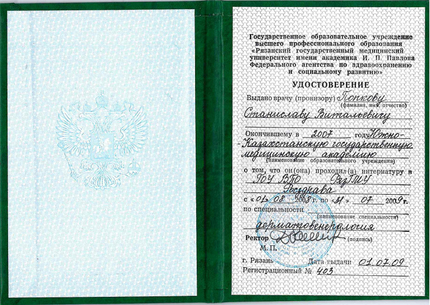 Государственное образовательное учреждение
высшего профессионального образования
«Рязанский государственный медицинский
университет имени академика И. П. Павлова
Федерального агентства по здравоохранению
и социальному развитию»
УДОСТОВЕРЕНИЕ
Выдано врачу (провизору) Попкову
(фамилия, имя, отчество)
Станиславу Витальевичу
Окончившему в 2007 году Южно-
Казахстанскую государственную
медицинскую академию
(наименование образовательного учреждения)
о том, что он(она) проходил(а) интернатуру в
ГОУ ВПО РязГМУ
Росздрава
с «01» 08 2008 г. по «31» 07 2009 г.
по специальности
(наименование специальности)
дерматовенерология
Ректор
(подпись)
М. П.
г. Рязань Дата выдачи 01.07.09
Регистрационный № 403